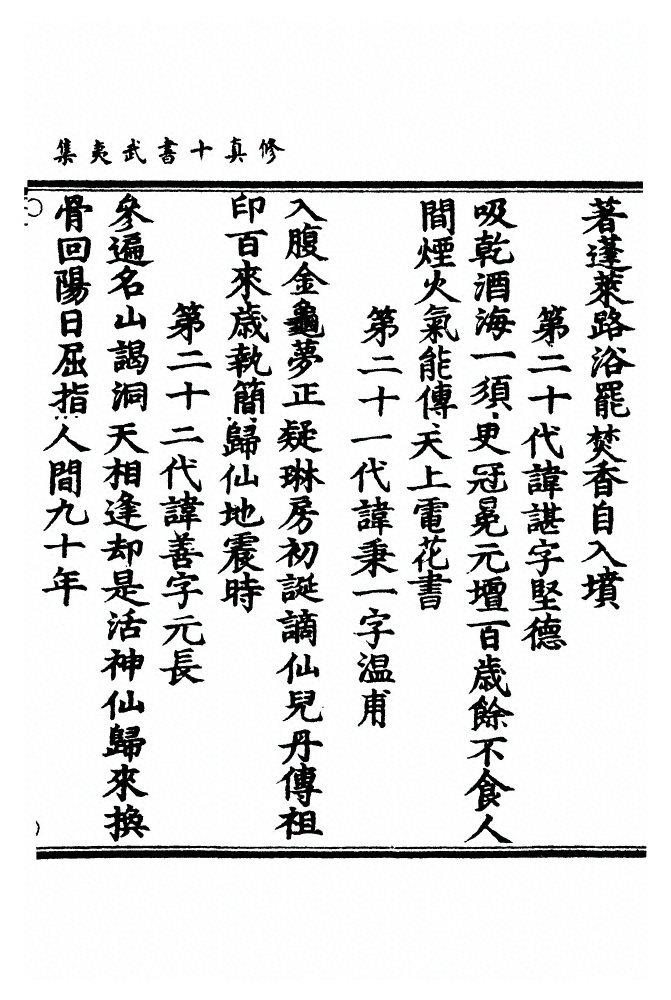 修真十書武夷集
著蓬萊路浴罷焚香自入墳
第二十代諱諶字堅德
吸乾酒海一須更冠冕元壇一百歲餘不食人
間煙火氣能傳天上電花書
第二十一代諱秉一字温甫
入腹金龜夢正疑琳房初誕謫仙兒丹傳祖
印百來歲執簡歸仙地震時
第二十二代諱善字元長
參遍名山謁洞天相逢却是活神仙歸來換
骨回陽日屈指人間九十年